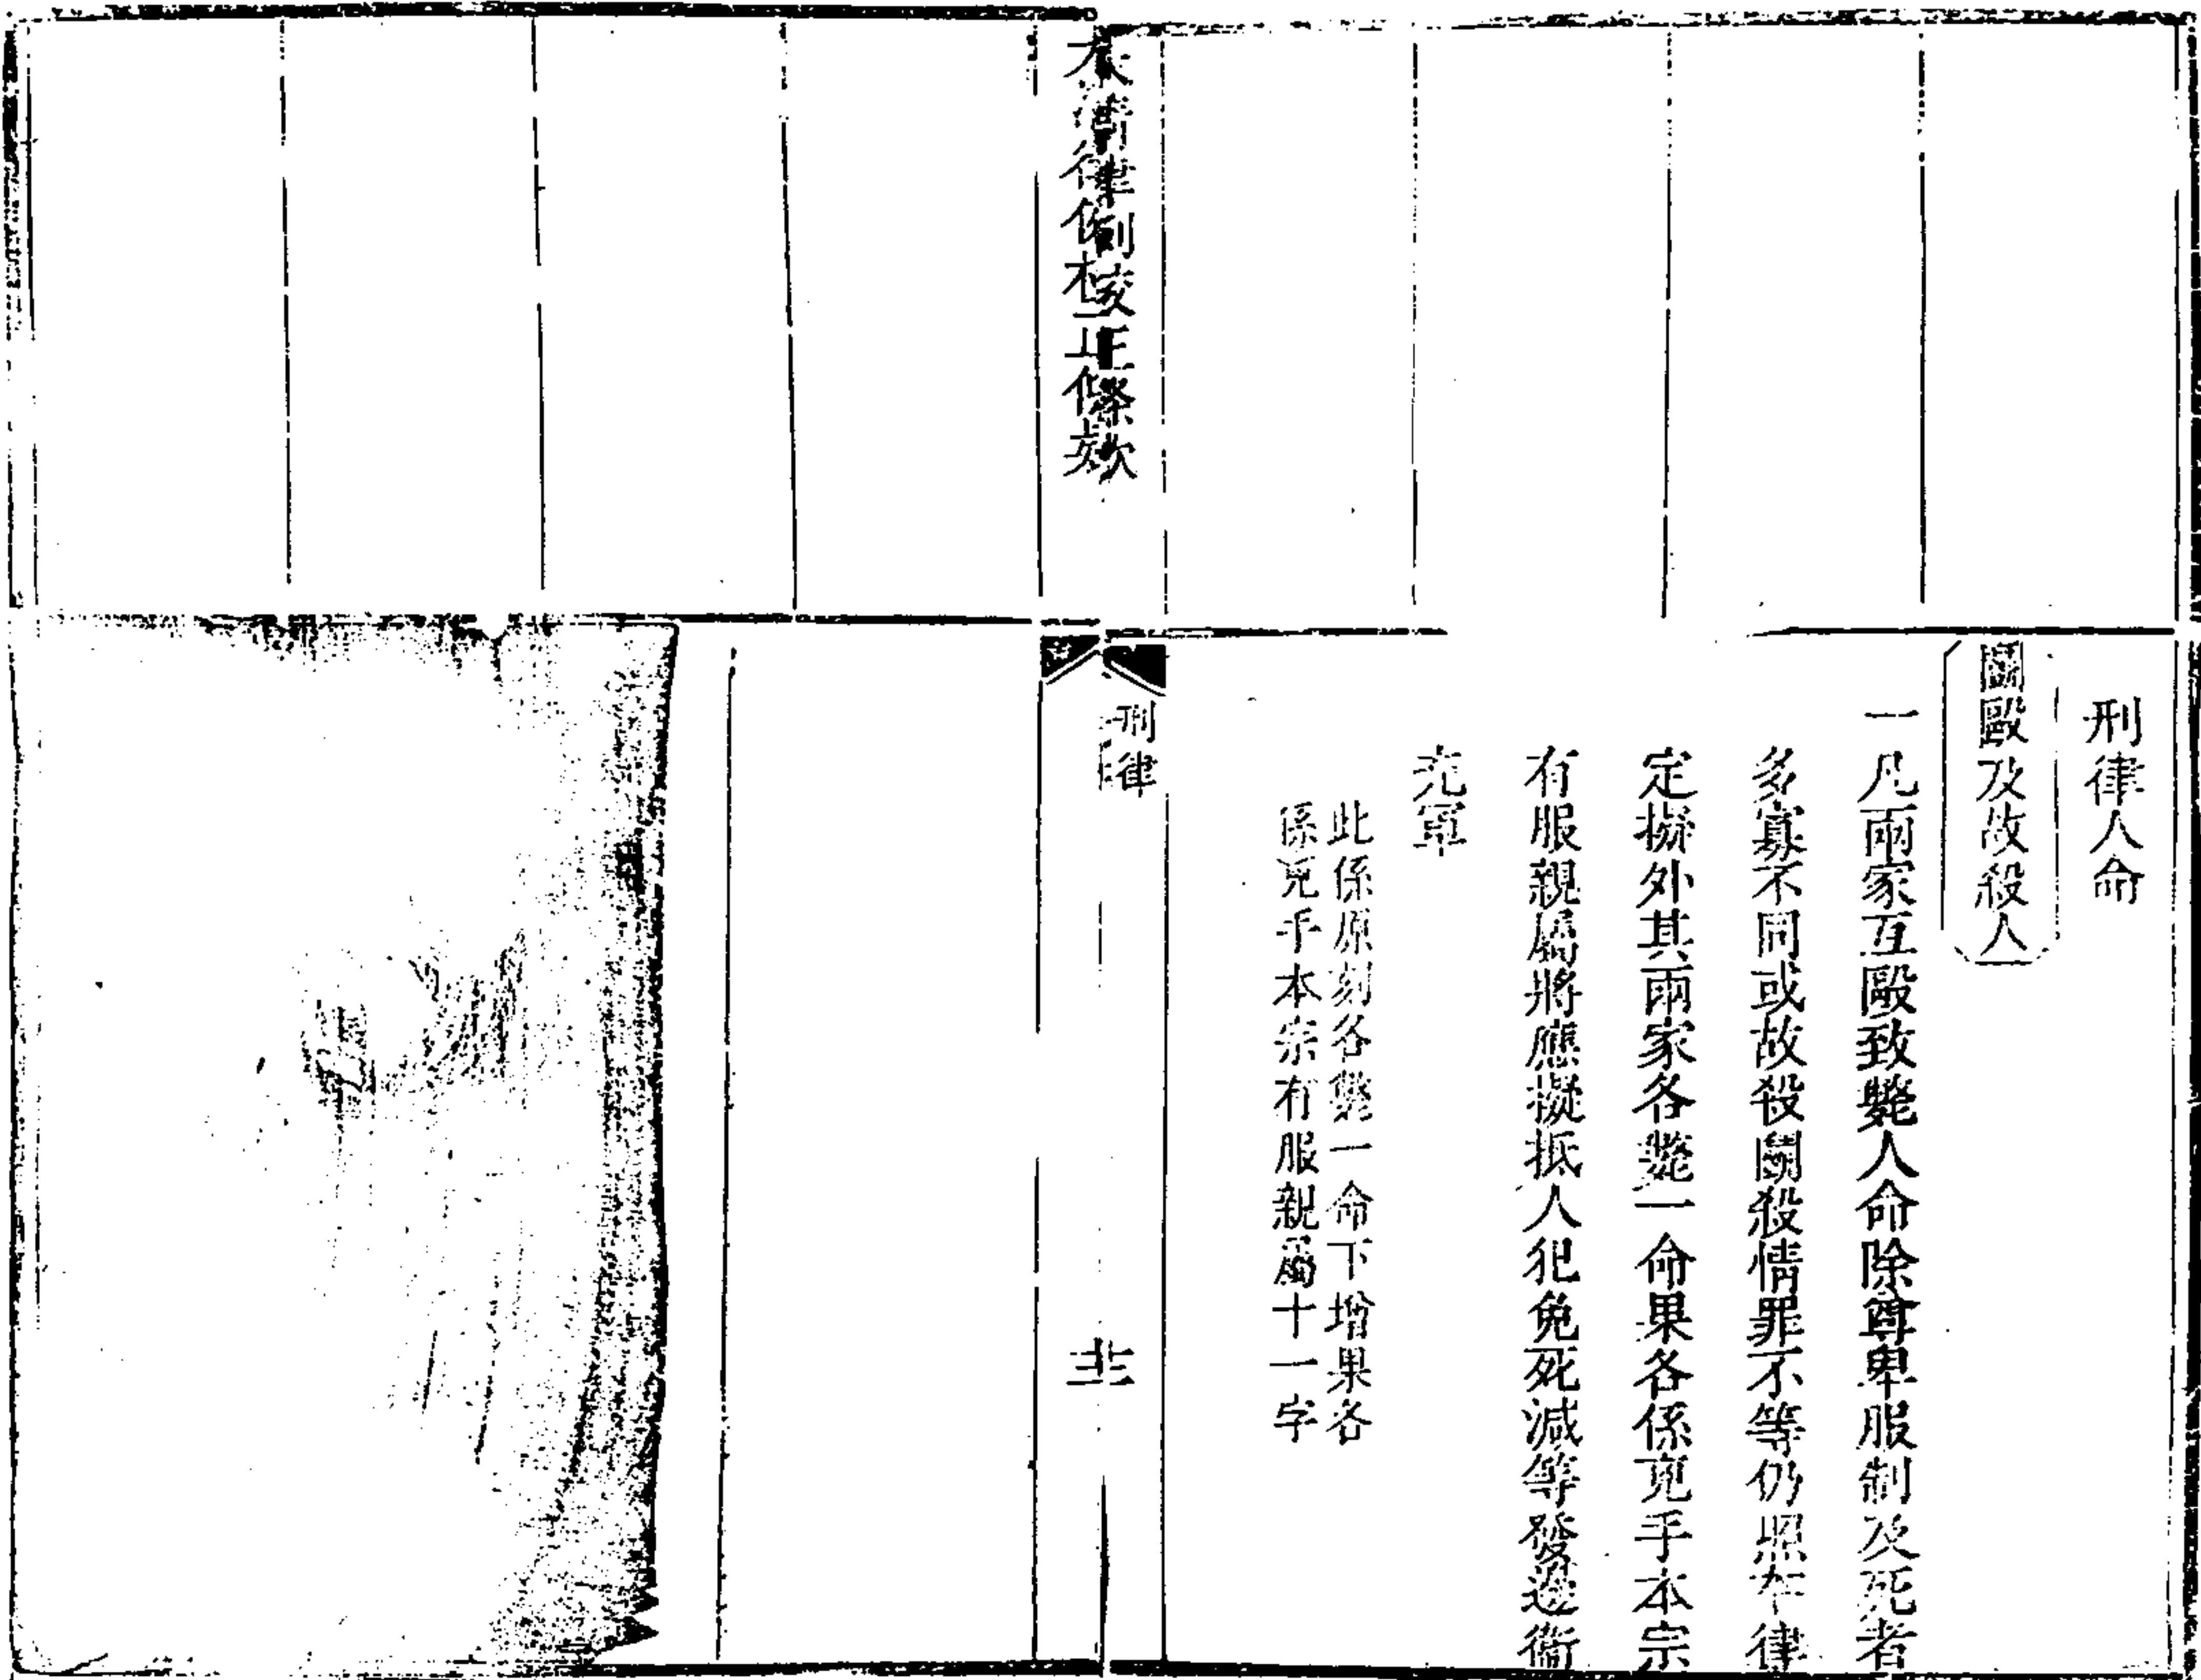 刑律人命
鬭毆及故殺人
一凡兩家互毆致斃人命除尊卑服制及死者
多寡不同或故殺鬭殺情罪不等仍照本律
定擬外其兩家各斃一命果各係兇手本宗
有服親屬將應擬抵人犯免死減等發邊衞
充軍
此係原刻各斃一命下增果各
係兇手本宗有服親屬十一字
大淸律例校正條欵
刑律